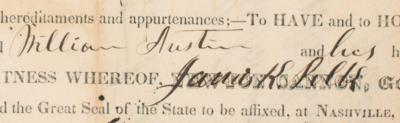 hereditaments and appurtenances;—To HAVE and to HO
William Austin and his h
TNESS WHEREOF, NEWTON CANNON, James K. Polk GO
d the Great Seal of the State to be affixed, at NASHVILLE,